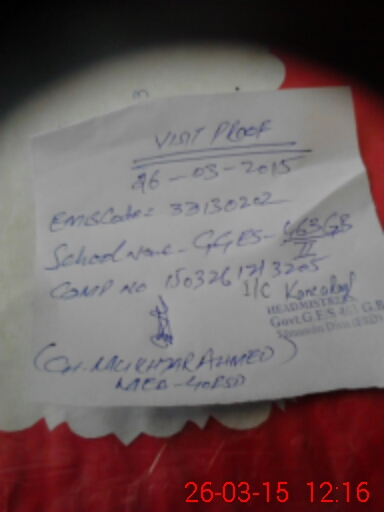 VISIT PROOF
26-03-2015
EMIS Code = 33130202
School Name - GGES - 463 GB
II
COMP NO 150326121 3205
I/C
HEADMISTRESS
Govt. G.E.S. 463 G.B
(CH. MUKHTAR AHMED)
26-03-15 12:16